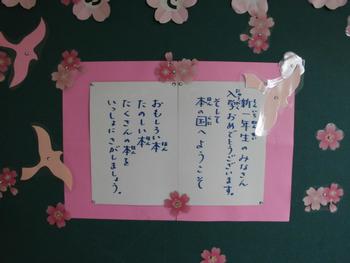 新一年生のみなさん
入学おめでとうございます。
そして
本の国へようこそ
おもしろい本
たのしい本
たくさんの本を
いっしょにさがしましょう。